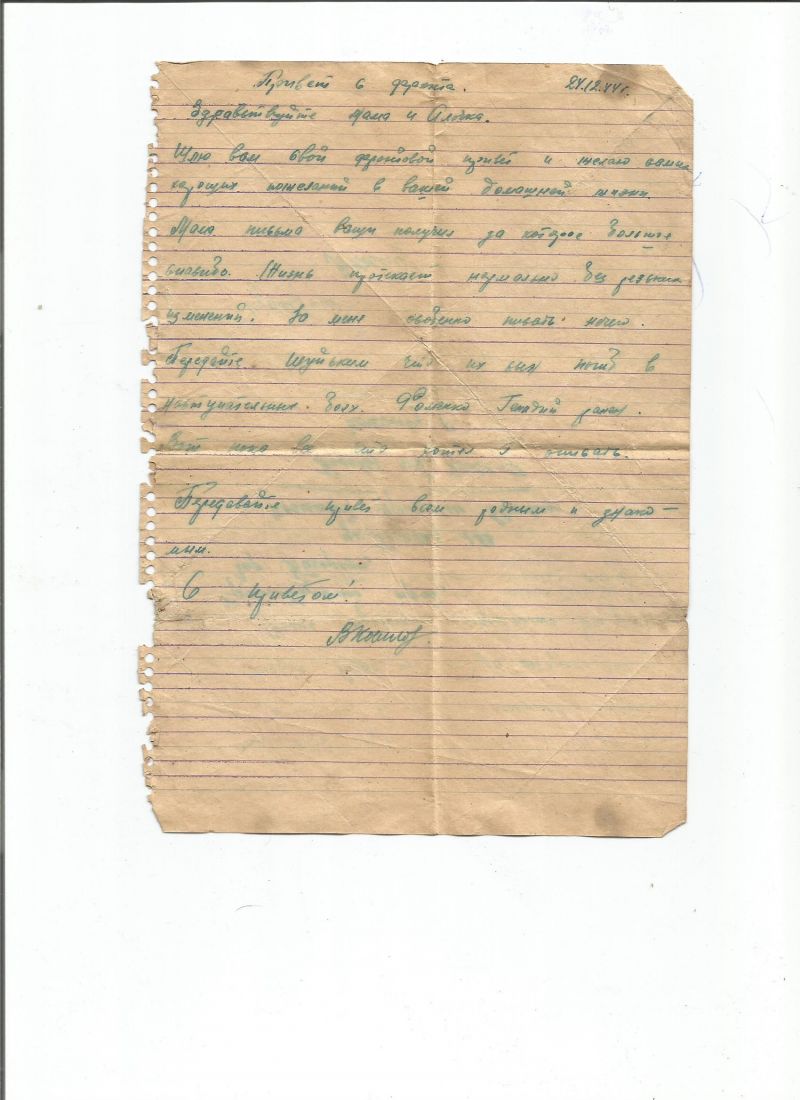 Привет с фронта. 24.12.44 г.
Здравствуйте мама и Алочка.
Шлю вам свой фронтовой привет и желаю
пожеланий в вашей домашной жизни.
Мама письма ваши получил за которое большое
спасибо. Жизнь протекает нормально без резких
изменений. За меня особенно писать нечего.
Передайте что их сын погиб в
наступательных боях. ранен.
Вот пока всё что хотел я описать.
Передавайте привет всем родным и знако-
мым.
С приветом!